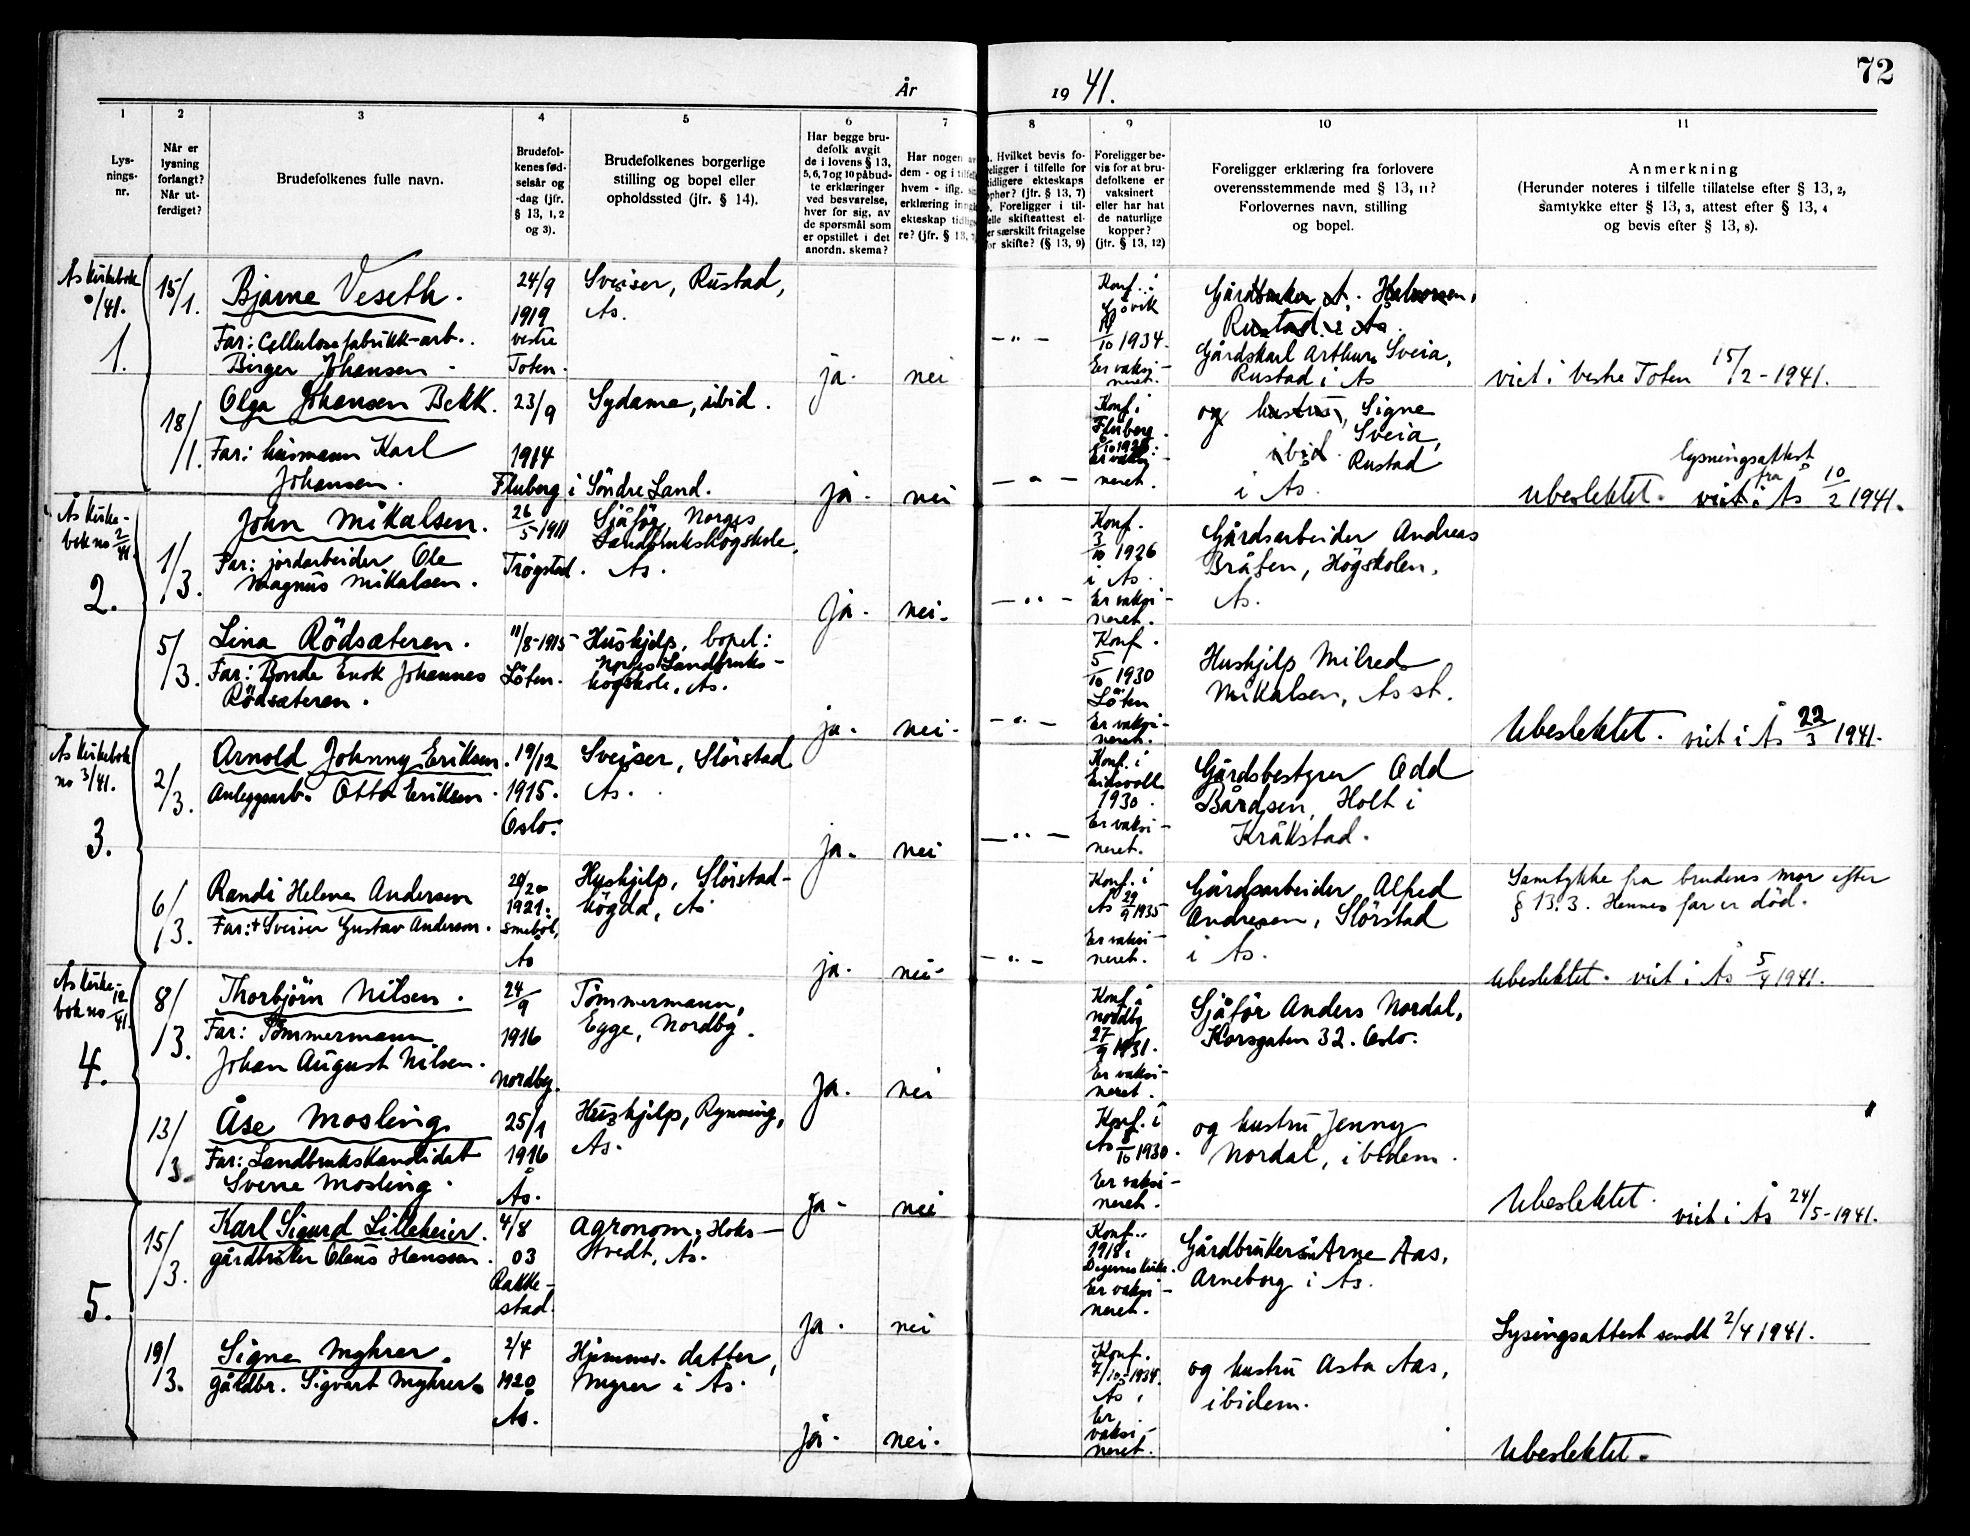 72
År 1941.
1 2 3 4 5 6 7 8 9 10 11
Lys-
nings-
nr.
Når er
lysning
forlangt?
Når ut-
ferdiget?
Brudefolkenes fulle navn.
Brudefol-
kenes fød-
selsår og
-dag (jfr.
§ 13, 1, 2
og 3).
Brudefolkenes borgerlige
stilling og bopel eller
opholdssted (jfr. § 14).
Har begge bru-
defolk avgit
de i lovens § 13,
5, 6, 7 og 10 påbud-
te erklæringer
ved besvarelse,
hver for sig, av
de spørsmål som
er opstillet i det
anordn. skema?
Har nogen
dem - og i
hvem - iflg.
erklæring
ekteskap
re? (jfr. § 13,
Hvilket bevis fo-
religger i tilfelle for
tidligere ekteskaps
ophør? (jfr. § 13, 7)
Foreligger i til-
felle skifteattest el-
ler særskilt fritagelse
for skifte? (§ 13, 9)
Foreligger be-
vis for at bru-
defolkene er
vaksinert
eller har hat
de naturlige
kopper?
(jfr. § 13, 12)
Foreligger erklæring fra forlovere
overensstemmende med § 13, 11?
Forlovernes navn, stilling
og bopel.
Anmerkning
(Herunder noteres i tilfelle tillatelse efter § 13, 2,
samtykke efter § 13, 3, attest efter § 13, 4
og bevis efter § 13, 8).
Ås Kirkebok
/41.
1.
15/1.
Bjarne Veseth.
Far: Cellulosefabrikk-arb.
Birger Johansen.
24/9
1919
vestre
Toten.
Sveiser, Rustad,
Ås.
ja. nei
— " —
Konf. i
Gjövik
1934.
Er vaksi-
neret.
Gårdbruker A. Halvorsen,
Rustad i Ås.
Gårdskarl Arthur Sveia,
Rustad i Ås
viet i vestre Toten 15/2-1941.
18/1.
Olga Johansen Bekk.
Far: husmann Karl
Johansen.
23/9
1914
Fluberg i Söndre Land.
Sydame, ibid.
ja. nei
— " —
Konf. i
Fluberg
Er vaksi-
neret.
og hustru, Signe
Sveia,
ibid. Rustad
i Ås.
lysningsattest
fra
Ubeslektet. viet i Ås 10/2 1941.
Ås Kirke-
bok no 2/41.
2.
1/3.
John Mikalsen.
Far: jordarbeider Ole
Magnus Mikalsen.
26/5-1911
Trögstad.
Sjåför, Norges
Landbrukshögskole,
Ås.
ja. nei.
— " —
Konf.
3/10 1926
i Ås.
Er vaksi-
neret.
Gårdsarbeider Andreas
Bråten, Högskolen.
Ås.
5/3.
Lina Rödsæteren.
Far: Bonde Enok Johannes
Rödsæteren.
11/8-1915
Löten.
Hushjelp, bopel:
Norges Landbruks-
högskole, Ås.
ja. nei.
— " —
Konf.
5/10 1930
Löten
Er vaksi-
neret.
Hushjelp Milred
Mikalsen, Ås st.
Ubeslektet. viet i Ås 22/3 1941.
Ås Kirkebok
no 3/41.
3.
2/3.
Arnold Johnny Eriksen.
Anleggsarb. Otto Eriksen.
19/12
1915.
Oslo.
Sveiser, Slörstad
Ås.
ja. nei
— " —
Konf. i
Eidsvoll
1930.
Er vaksi-
neret.
Gårdsbestyrer Odd
Bårdsen, Holt i
Kråkstad.
6/3.
Randi Helene Andersen
Far: + Sveiser Gustav Andersen.
1921.
Smeböl,
Ås
Hushjelp, Slörstad-
högda, Ås
ja. nei-
— " —
Konf. i
Ås 29/9 1935
Er vaksi-
neret.
Gårdsarbeider Alfred
Andresen, Slörstad
i Ås.
Samtykke fra brudens mor efter
§ 13. 3. Hennes far er död.
Ubeslektet. viet i Ås 5/4 1941.
Ås Kirke-
bok no 12/41.
4.
8/3.
Thorbjörn Nilsen.
Far: Tömmermann
Johan August Nilsen.
24/9
1916
Nordby.
Tömmermann,
Egge, Nordby.
ja. nei
Konf. i
Nordby
27/9 1931.
Er vaksi-
neret.
Sjåför Anders Nordal,
Korsgaten 32. Oslo.
13/3.
Åse Mosling
Far: Landbrukskandidat
Sverre Mosling.
25/1
1916
Ås.
Hushjelp, Rynning,
Ås.
ja- nei
Konf. i
Ås 8/10 1930.
Er vaksi-
neret.
og hustru Jenny
Nordal, ibidem.
Ubeslektet. viet i Ås 24/5-1941.
5.
15/3.
Karl Sigurd Lilleheier.
gårdbruker Olaus Hanssen.
4/8
03
Rakke-
stad.
Agronom, Hoks-
tvedt, Ås.
ja. nei
Konf.
1918 i
Degernes kirke.
Er vaksi-
neret.
Gårdbruker Arne Aas,
Arneborg i Ås.
Lysingsattest sendt 2/4 1941.
19/3.
Signe Myhrer.
gårdbr. Sigvart Myhrer.
2/4
1920
Ås.
Hjemmev. datter,
Myrer i Ås.
ja. nei.
Konf.
7/10-1934.
Ås.
Er
vaksi-
neret.
og hustru Asta Aas,
ibidem.
Ubeslektet.